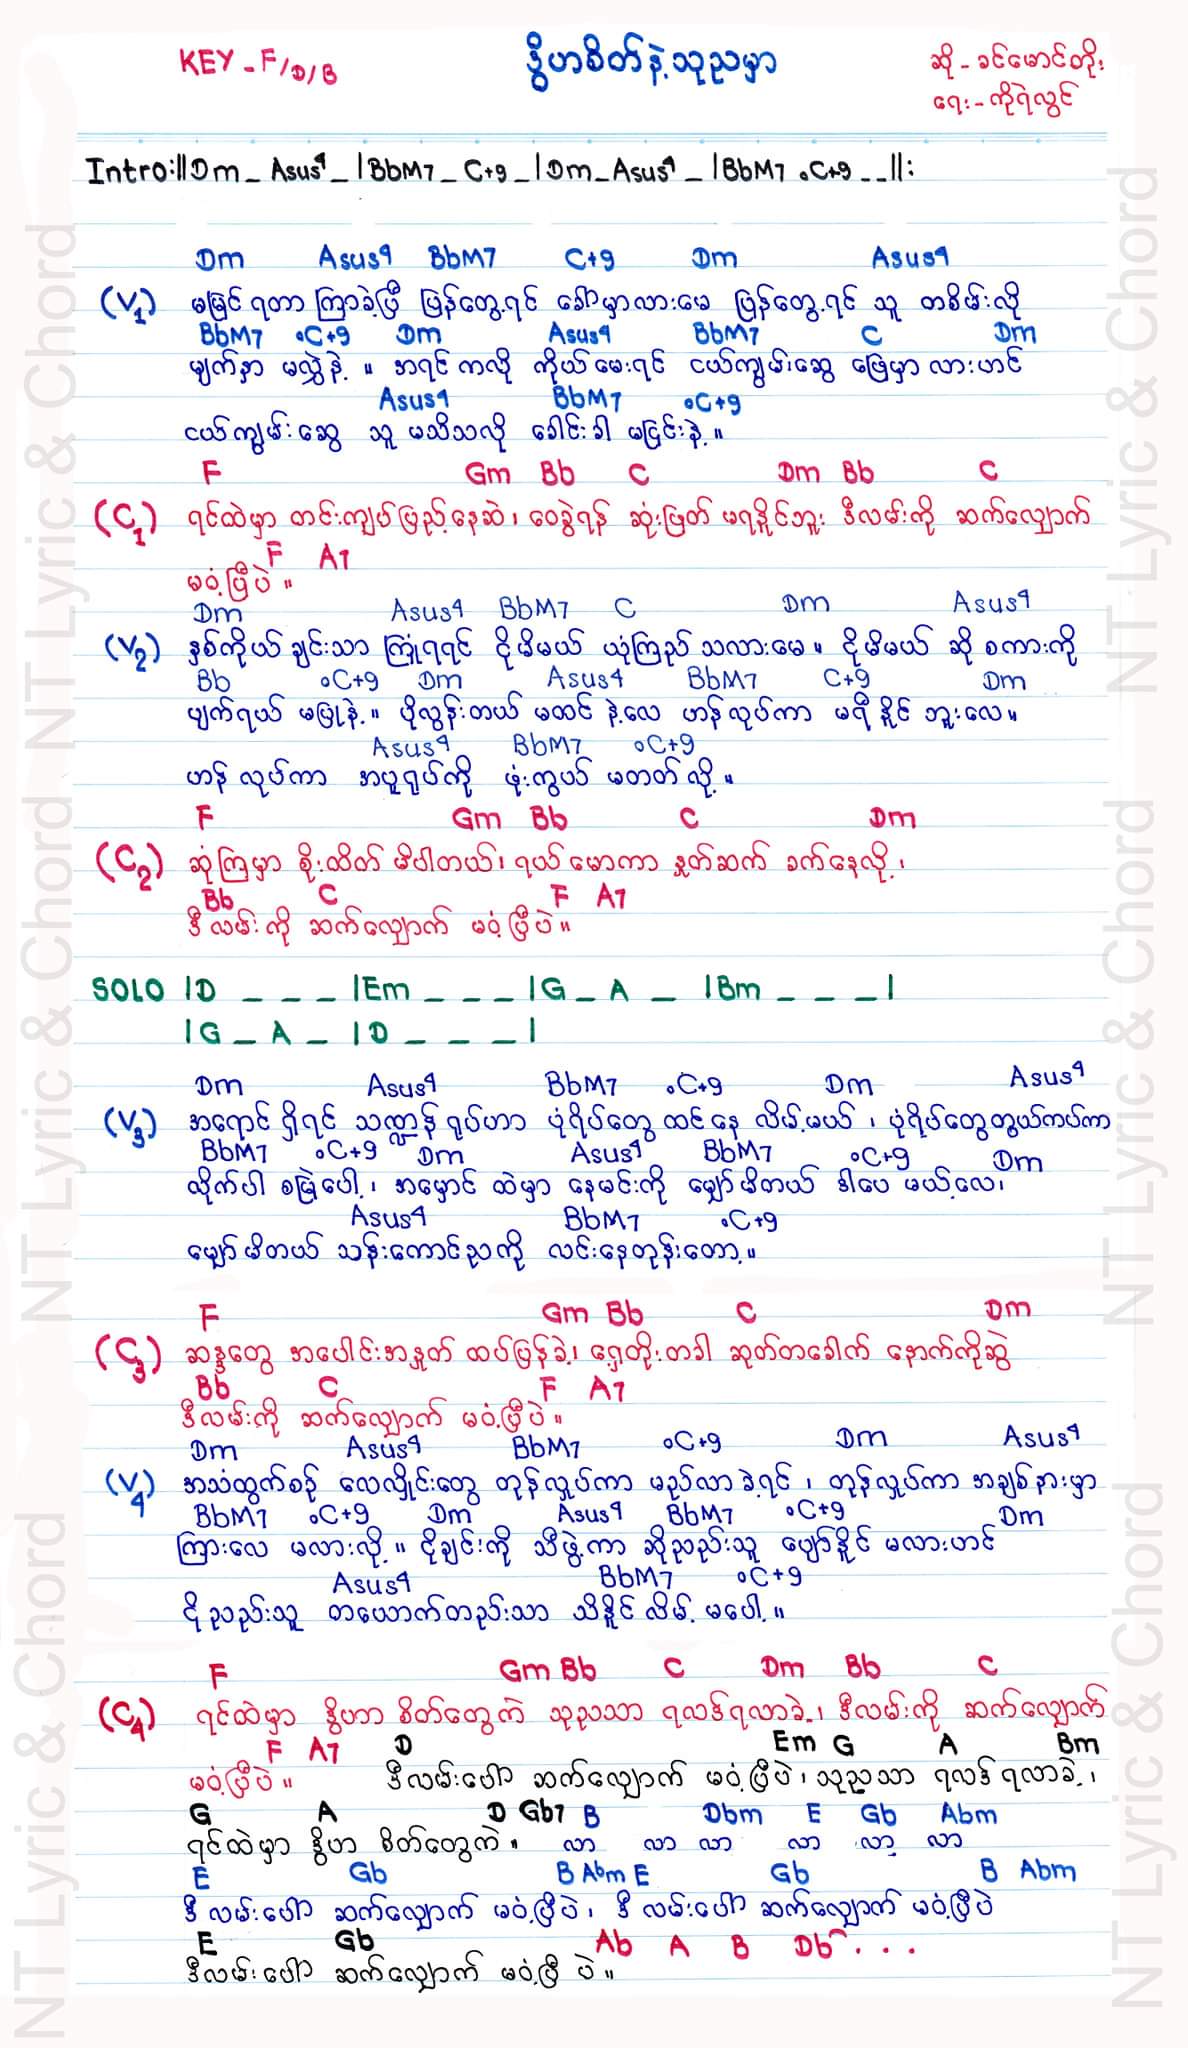 KEY - F/D/B
ဒွိဟစိတ်နဲ့သုညမှာ
ဆို - ခင်မောင်တိုး
ရေး - ကိုရဲလွင်
Intro:||Dm _ Asus4 _ |BbM7 _ C+9 _ |Dm _ Asus4 _ |BbM7 .C+9 _ _||:
Dm Asus4 BbM7 C+9 Dm Asus4
(V1) မမြင်ရတာ ကြာခဲ့ပြီ ပြန်တွေ့ရင် ခေါ်မှာလားမေ ပြန်တွေ့ရင် သူ တစိမ်းလို
BbM7 .C+9 Dm Asus4 BbM7 C Dm
မျက်နှာ မလွှဲနဲ့ ။ အရင် ကလို ကိုယ် မေးရင် ငယ်ကျွမ်းဆွေ ဖြေမှာ လားဟင်
Asus4 BbM7 .C+9
ငယ်ကျွမ်းဆွေ သူ မသိသလို ခေါင်းခါ မငြင်းနဲ့ ။
F Gm Bb C Dm Bb C
(C1) ရင်ထဲမှာ တင်းကျပ်ပြည့်နေဆဲ ၊ ဝေခွဲရန် ဆုံးဖြတ် မရနိုင်ဘူး ဒီလမ်းကို ဆက်လျှောက်
F A7
မဝံ့ပြီပဲ ။
Dm Asus4 BbM7 C Dm Asus4
(V2) နှစ်ကိုယ်ချင်းသာ ကြုံရရင် ငိုမိမယ် ယုံကြည် သလားမေ ။ ငိုမိမယ် ဆို စကားကို
Bb .C+9 Dm Asus4 BbM7 C+9 Dm
ပျက်ရယ် မပြုနဲ့ ။ ပိုလွန်းတယ် မထင် နဲ့လေ ဟန်လုပ်ကာ မရီ နိုင် ဘူးလေ ။
Asus4 BbM7 .C+9
ဟန် လုပ်ကာ အပူရုပ်ကို ဖုံးကွယ် မတတ်လို့ ။
F Gm Bb C Dm
(C2) ဆုံကြမှာ စိုးထိတ် မိပါတယ် ၊ ရယ်မောကာ နှုတ်ဆက် ခက်နေလို့ ၊
Bb C F A7
ဒီလမ်းကို ဆက်လျှောက် မဝံ့ပြီပဲ ။
SOLO |D _ _ _ |Em _ _ _ |G _ A _ |Bm _ _ _|
|G _ A _ |D _ _ _|
Dm Asus4 BbM7 .C+9 Dm Asus4
(V3) အရောင် ရှိရင် သဏ္ဍာန် ရုပ်ဟာ ပုံရိပ်တွေ ထင်နေ လိမ့်မယ် ၊ ပုံရိပ်တွေတွယ်ကပ်ကာ
BbM7 .C+9 Dm Asus4 BbM7 .C+9 Dm
လိုက်ပါ စမြဲပေါ့ ၊ အမှောင် ထဲမှာ နေမင်းကို မျှော်မိတယ် ဒါပေ မယ့်လေ ၊
Asus4 BbM7 .C+9
မျှော်မိတယ် သန်းကောင်ညကို လင်းနေတုန်းတော့ ။
F Gm Bb C Dm
(C3) ဆန္ဒတွေ အပေါင်းအနှုတ် ထပ်ပြန်ခဲ့၊ ရှေ့တိုးတခါ ဆုတ်တခေါက် နောက်ကိုဆွဲ
Bb C F A7
ဒီလမ်းကို ဆက်လျှောက် မဝံ့ပြီပဲ ။
Dm Asus4 BbM7 .C+9 Dm Asus4
(V4) အသံထွက်စဉ် လေလှိုင်းတွေ တုန်လှုပ်ကာ မည်လာ ခဲ့ရင် ၊ တုန်လှုပ်ကာ အချစ်နားမှာ
BbM7 .C+9 Dm Asus4 BbM7 .C+9 Dm
ကြားလေ မလားလို့ ။ ငိုချင်းကို သီဖွဲ့ကာ ဆိုညည်းသူ ပျော်နိုင် မလားဟင်
Asus4 BbM7 .C+9
ငိုညည်းသူ တယောက်တည်းသာ သိနိုင်လိမ့် မပေါ့ ။
F Gm Bb C Dm Bb C
(C4) ရင်ထဲမှာ ဒွိဟာ စိတ်တွေကဲ သုညသာ ရလဒ်ရလာခဲ့ ၊ ဒီလမ်းကို ဆက်လျှောက်
F A7 D Em G A Bm
မဝံ့ပြီပဲ ။ ဒီလမ်းပေါ် ဆက်လျှောက် မဝံ့ပြီပဲ ၊ သုညသာ ရလဒ် ရလာခဲ့ ၊
G A D Gb7 B Dbm E Gb Abm
ရင်ထဲမှာ ဒွိဟ စိတ်တွေကဲ ။ လာ လာ လာ လာ လာ လာ
E Gb B Abm E Gb B Abm
ဒီ လမ်းပေါ် ဆက်လျှောက် မဝံ့ပြီပဲ ၊ ဒီ လမ်းပေါ် ဆက်လျှောက် မဝံ့ပြီပဲ
E Gb Ab A B Db ...
ဒီလမ်းပေါ် ဆက်လျှောက် မဝံ့ပြီ ပဲ ။
NT Lyric & Chord NT Lyric & Chord NT Lyric & Chord
NT Lyric & Chord NT Lyric & Chord NT Lyric & Chord